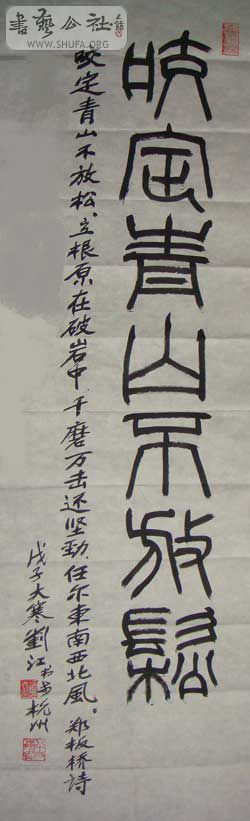 書藝公社
WWW.SHUFA.ORG
咬定青山不放鬆
咬定青山不放松、立根原在破岩中、千磨万击还坚劲、任尔東南西北風。郑板桥詩
戊子大寒劉江书于杭州